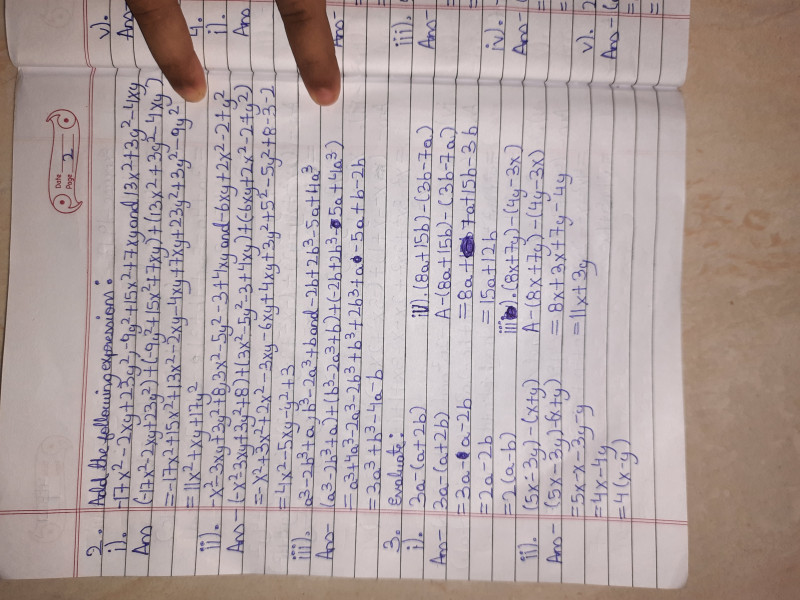 Date
Page 2
2. Add the following expressions:
i). -17x²-2xy+23y², -9y²+15x²+7xy and 13x²+3y²-4xy
Ans (-17x²-2xy+23y²)+(-9y²+15x²+7xy)+(13x²+3y²-4xy)
=-17x²+15x²+13x²-2xy-4xy+7xy+23y²+3y²-9y²
=11x²+xy+17y²
ii). -x²-3xy+3y²+8, 3x²-5y²-3+4xy and -6xy+2x²-2+y²
Ans-(-x²-3xy+3y²+8)+(3x²-5y²-3+4xy)+(-6xy+2x²-2+y²)
=-x²+3x²+2x²-3xy-6xy+4xy+3y²+5²-5y²+8-3-2
=4x²-5xy-y²+3
iii). a³-2b³+a, b³-2a³+b and -2b+2b³-5a+4a³
Ans- (a³-2b³+a)+(b³-2a³+b)+(-2b+2b³-5a+4a³)
=a³+4a³-2a³-2b³+b³+2b³+a-5a+b-2b
=3a³+b³-4a-b
3. Evaluate:
i). 3a-(a+2b)
Ans- 3a-(a+2b)
=3a-a-2b
=2a-2b
=2(a-b)
ii). (5x-3y)-(x+y)
Ans- (5x-3y)-(x+y)
=5x-x-3y-y
=4x-4y
=4(x-y)
(8a+15b)-(3b-7a)
A-(8a+15b)-(3b-7a)
=8a+7a+15b-3b
=15a+12b
(8x+7y)-(4y-3x)
A-(8x+7y)-(4y-3x)
=8x+3x+7y-4y
=11x+3y
v).
Ans
4.
i).
Ans
Ans-
iii).
Ans
iv).
Ans-
v).
Ans-